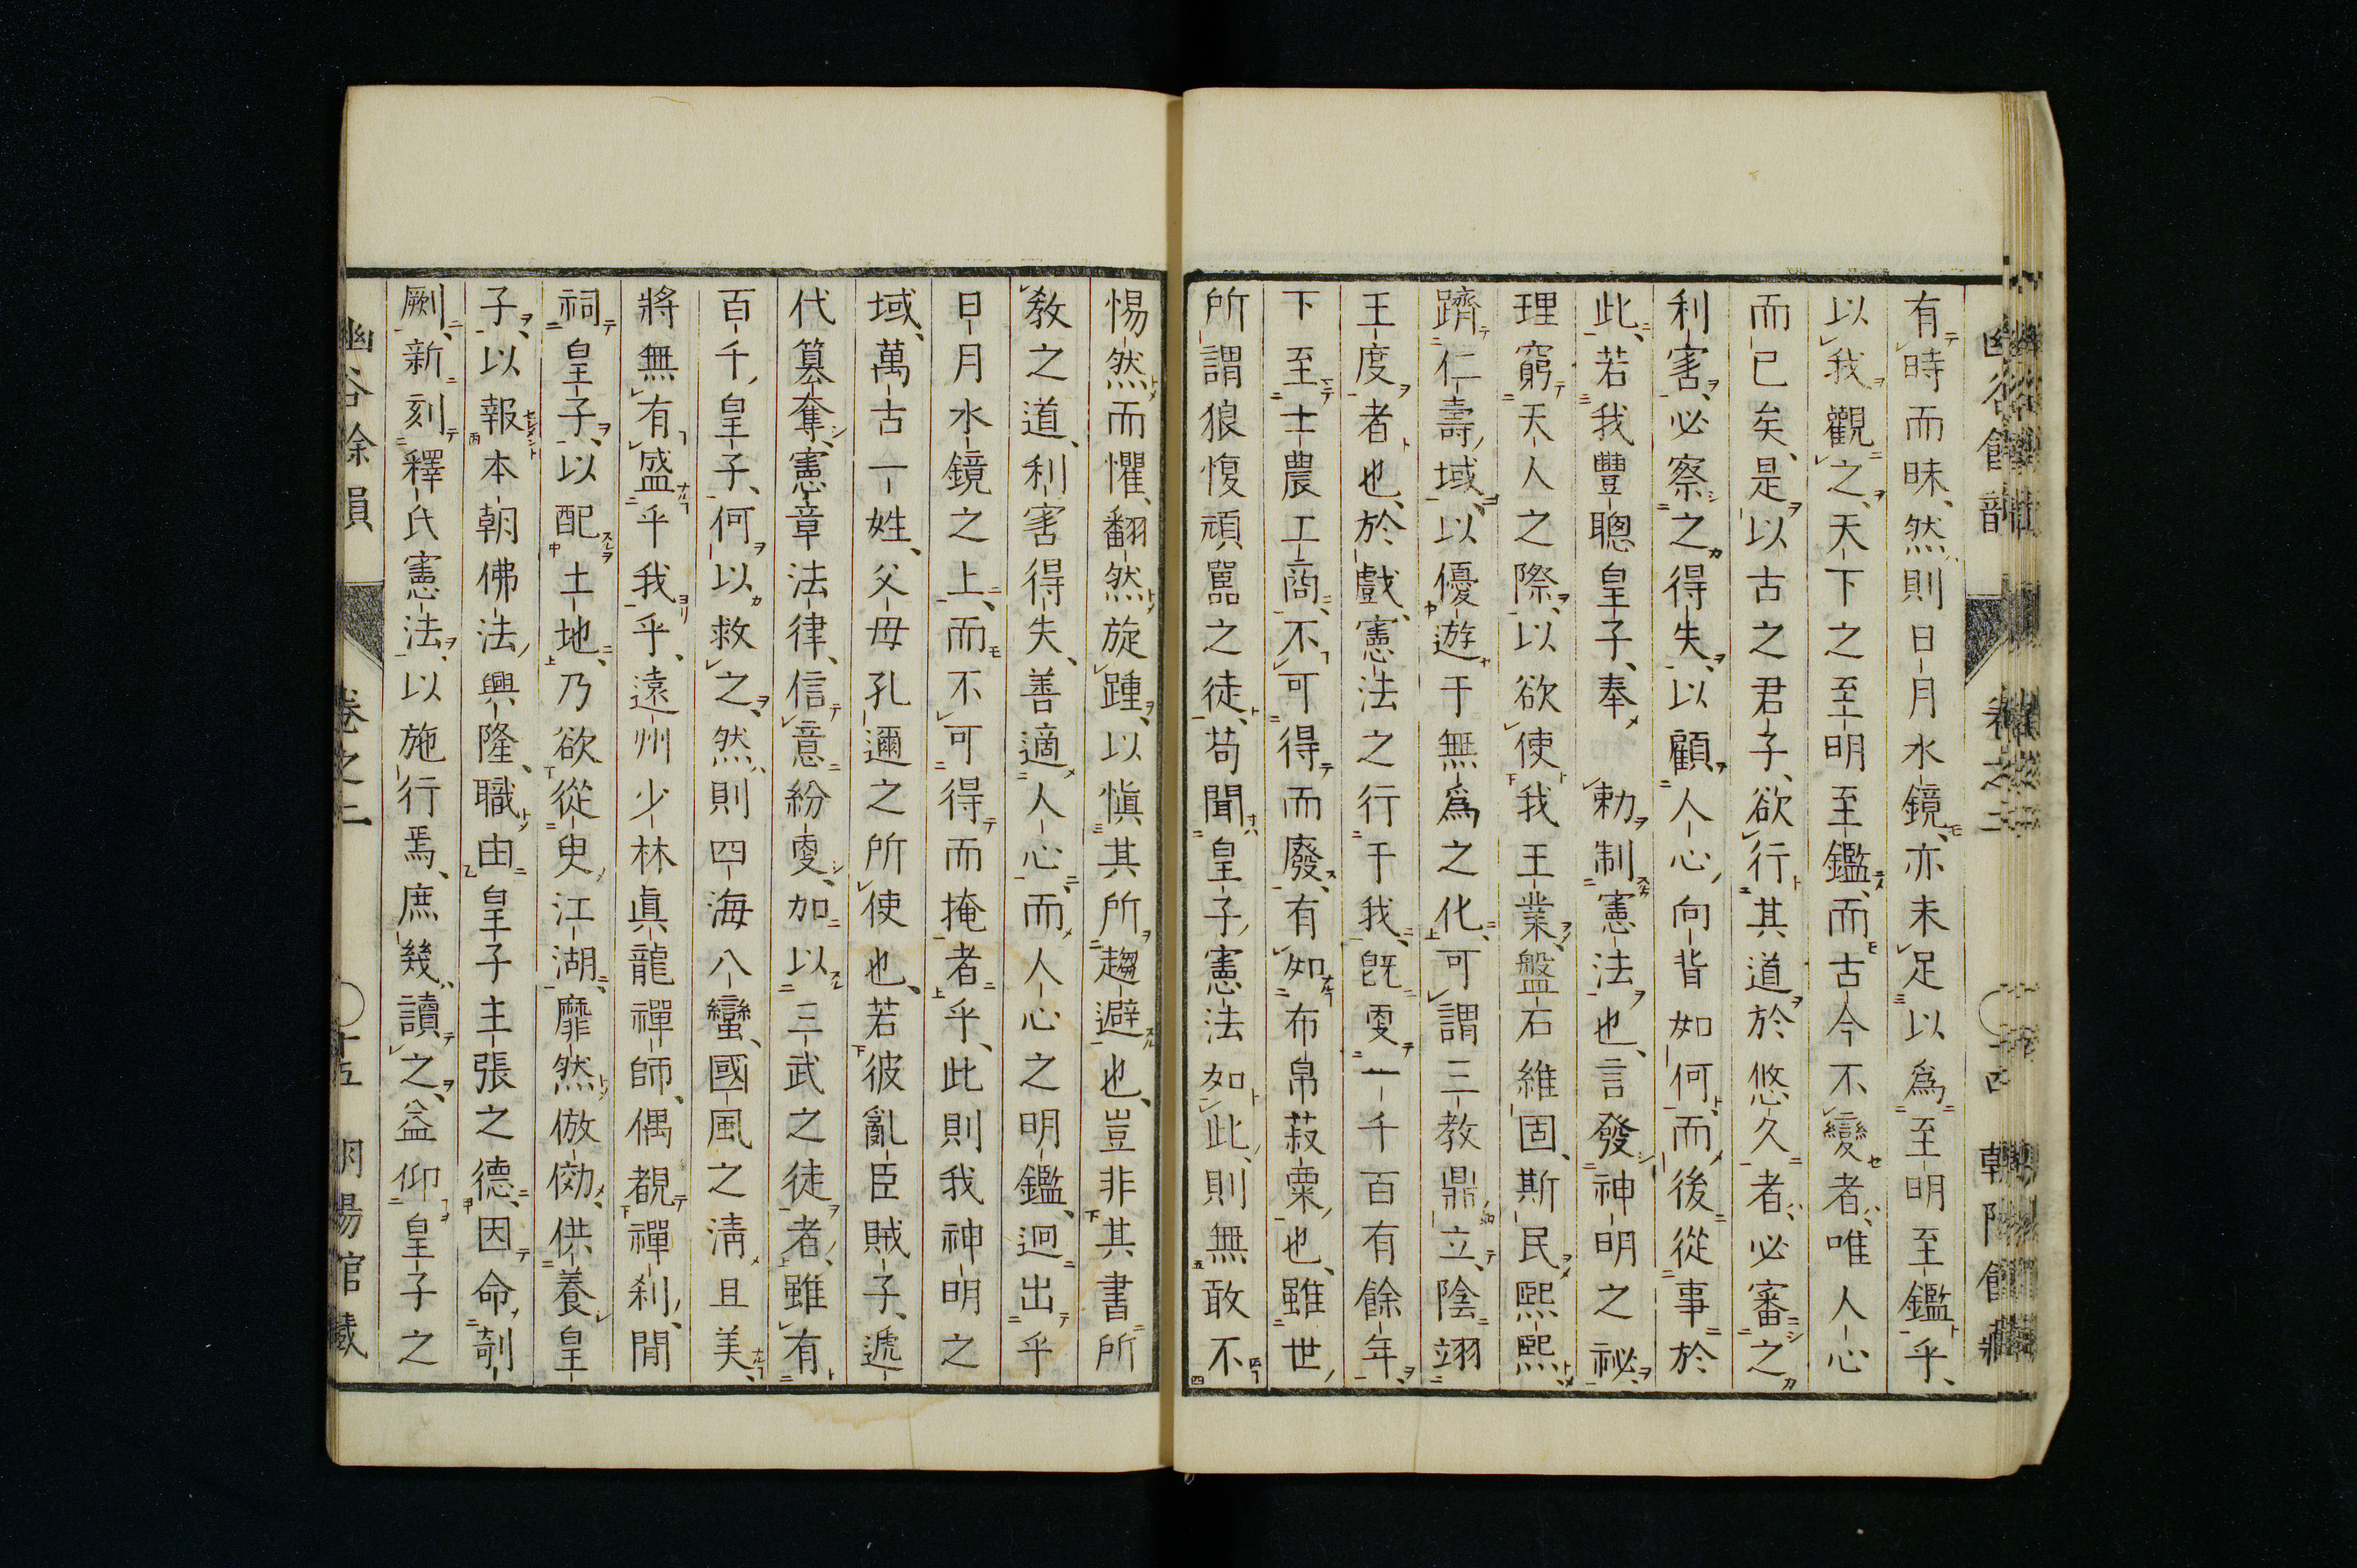 有時而昧、然則日月水鏡、亦未足以爲至明至鑑乎、
以我觀之、天下之至明至鑑、而古今不變者、唯人心
而已矣、是以古之君子、欲行其道於悠久者、必審之
利害、必察之得失、以顧人心向背如何、而後從事於
此、若我豐聰皇子、奉勅制憲法也、言發神明之祕、
理窮天人之際、以欲使我王業盤石維固、斯民熙熙、
躋仁壽域、以優遊于無爲之化、可謂三教鼎立、陰翊
王度者也、於戲、憲法之行于我、旣叓一千百有餘年、
下至士農工商、不可得而廢、有如布帛菽粟也、雖世
所謂狼愎頑嚚之徒、苟聞皇子憲法如此、則無敢不
惕然而懼、翻然旋踵、以愼其所趨避也、豈非其書所
敎之道、利害得失、善適人心、而人心之明鑑、迥出乎
日月水鏡之上、而不可得而掩者乎、此則我神明之
域、萬古一姓、父母孔邇之所使也、若彼亂臣賊子、遞
代篡奪、憲章法律、信意紛叓、加以三武之徒者、雖有
百千皇子、何以救之、然則四海八蠻、國風之淸且美、
將無有盛乎我乎、遠州少林眞龍禪師、偶覩禪刹、閒
祠皇子、以配土地、乃欲從臾江湖、靡然倣傚、供養皇
子、以報本朝佛法興隆、職由皇子主張之德、因命剞
劂、新刻釋氏憲法、以施行焉、庶幾讀之、益仰皇子之
幽谷餘韻 卷之二 十五 朝陽館藏